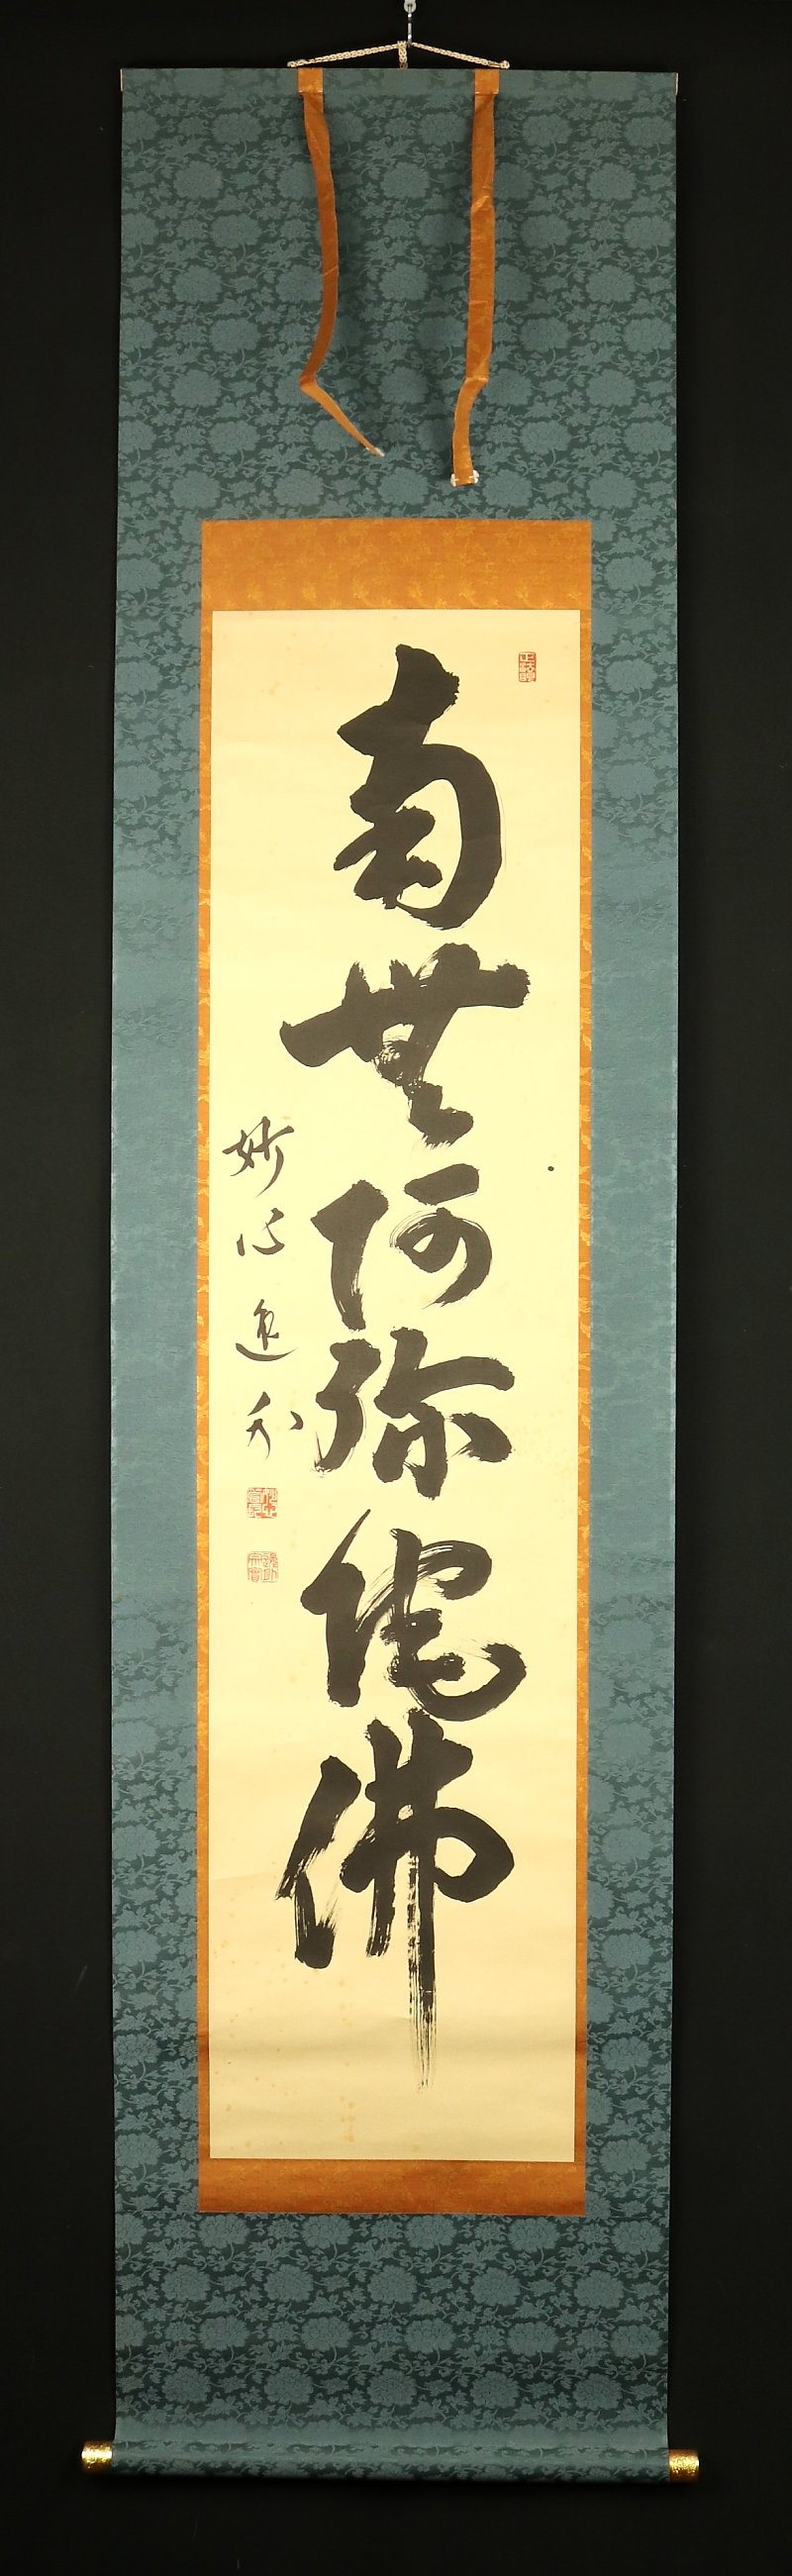 南無阿弥佗佛
妙心